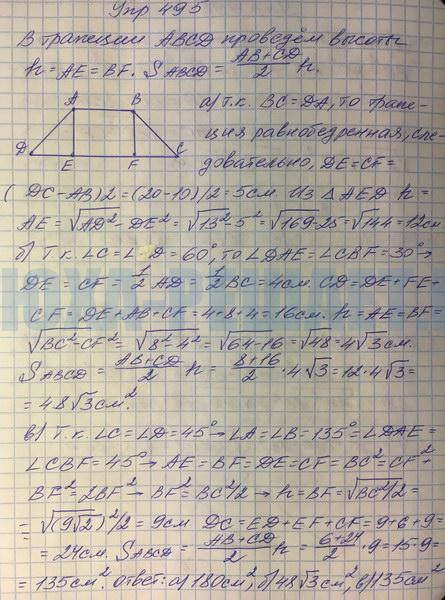 Упр 495
В трапеции ABCD проведём высоты
h = AE = BF. S ABCD = (AB+CD)/2 h.
A B
D E F C
а) Т.к. BC = DA, то трапе-
ция равнобедренная, сле-
довательно, DE = CF =
(DC-AB)2 = (20-10)/2 = 5см. Из △AED h =
AE = √AD²-DE² = √13²-5² = √169-25 = √144 = 12см
б) Т.к. ∠C = ∠D = 60°, то ∠DAE = ∠CBF = 30° →
DE = CF = 1/2 AD = 1/2 BC = 4см. CD = DE + FE +
CF = DE + AB + CF = 4+8+4 = 16см. h = AE = BF =
√BC²-CF² = √8²-4² = √64-16 = √48 = 4√3 см.
S ABCD = (AB+CD)/2 h = (8+16)/2 · 4√3 = 12·4√3 =
= 48√3 см²
в) Т.к. ∠C = ∠D = 45° → ∠A = ∠B = 135° = ∠DAE =
∠CBF = 45° → AE = BF = DE = CF = BC² = CF² +
BF² = 2BF² → BF² = BC²/2 → h = BF = √BC²/2 =
= √(9√2)²/2 = 9см DC = ED + EF + CF = 9+6+9 =
= 24см. S ABCD = (AB+CD)/2 h = (6+24)/2 · 9 = 15·9 =
= 135см². ответ: а) 180см², б) 48√3 см², в) 135см²